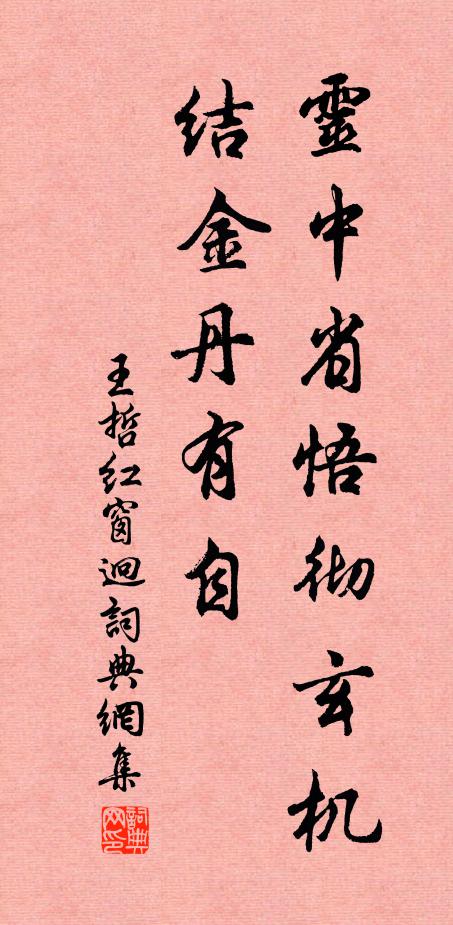 靈中省悟彻玄机
结金丹有自
王哲红窗迥詞典網集
詞典
网印